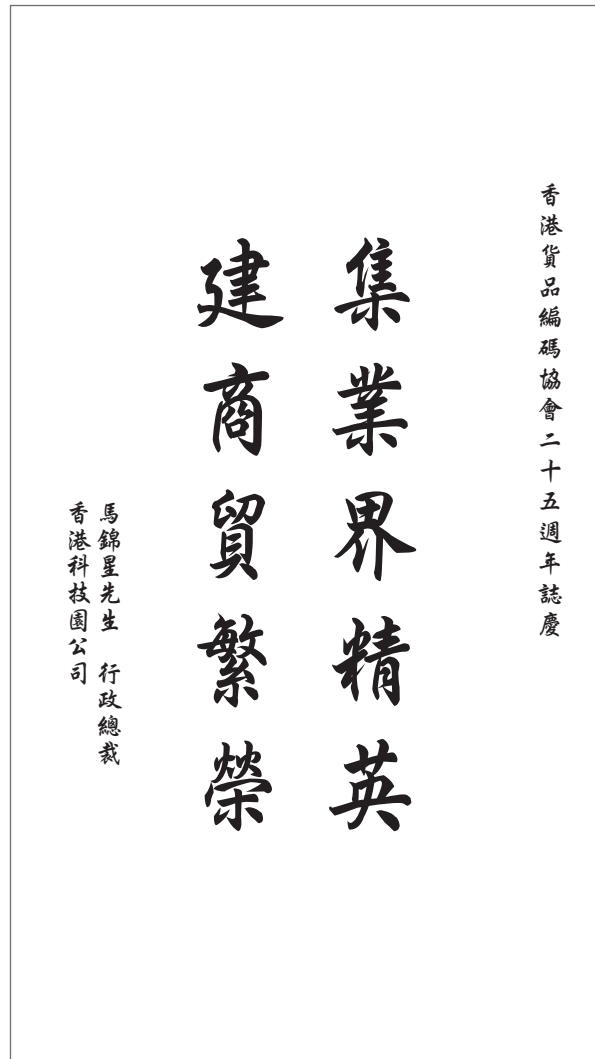 香港貨品編碼協會二十五週年誌慶
集業界精英
建商貿繁榮
馬錦星先生　行政總裁
香港科技園公司